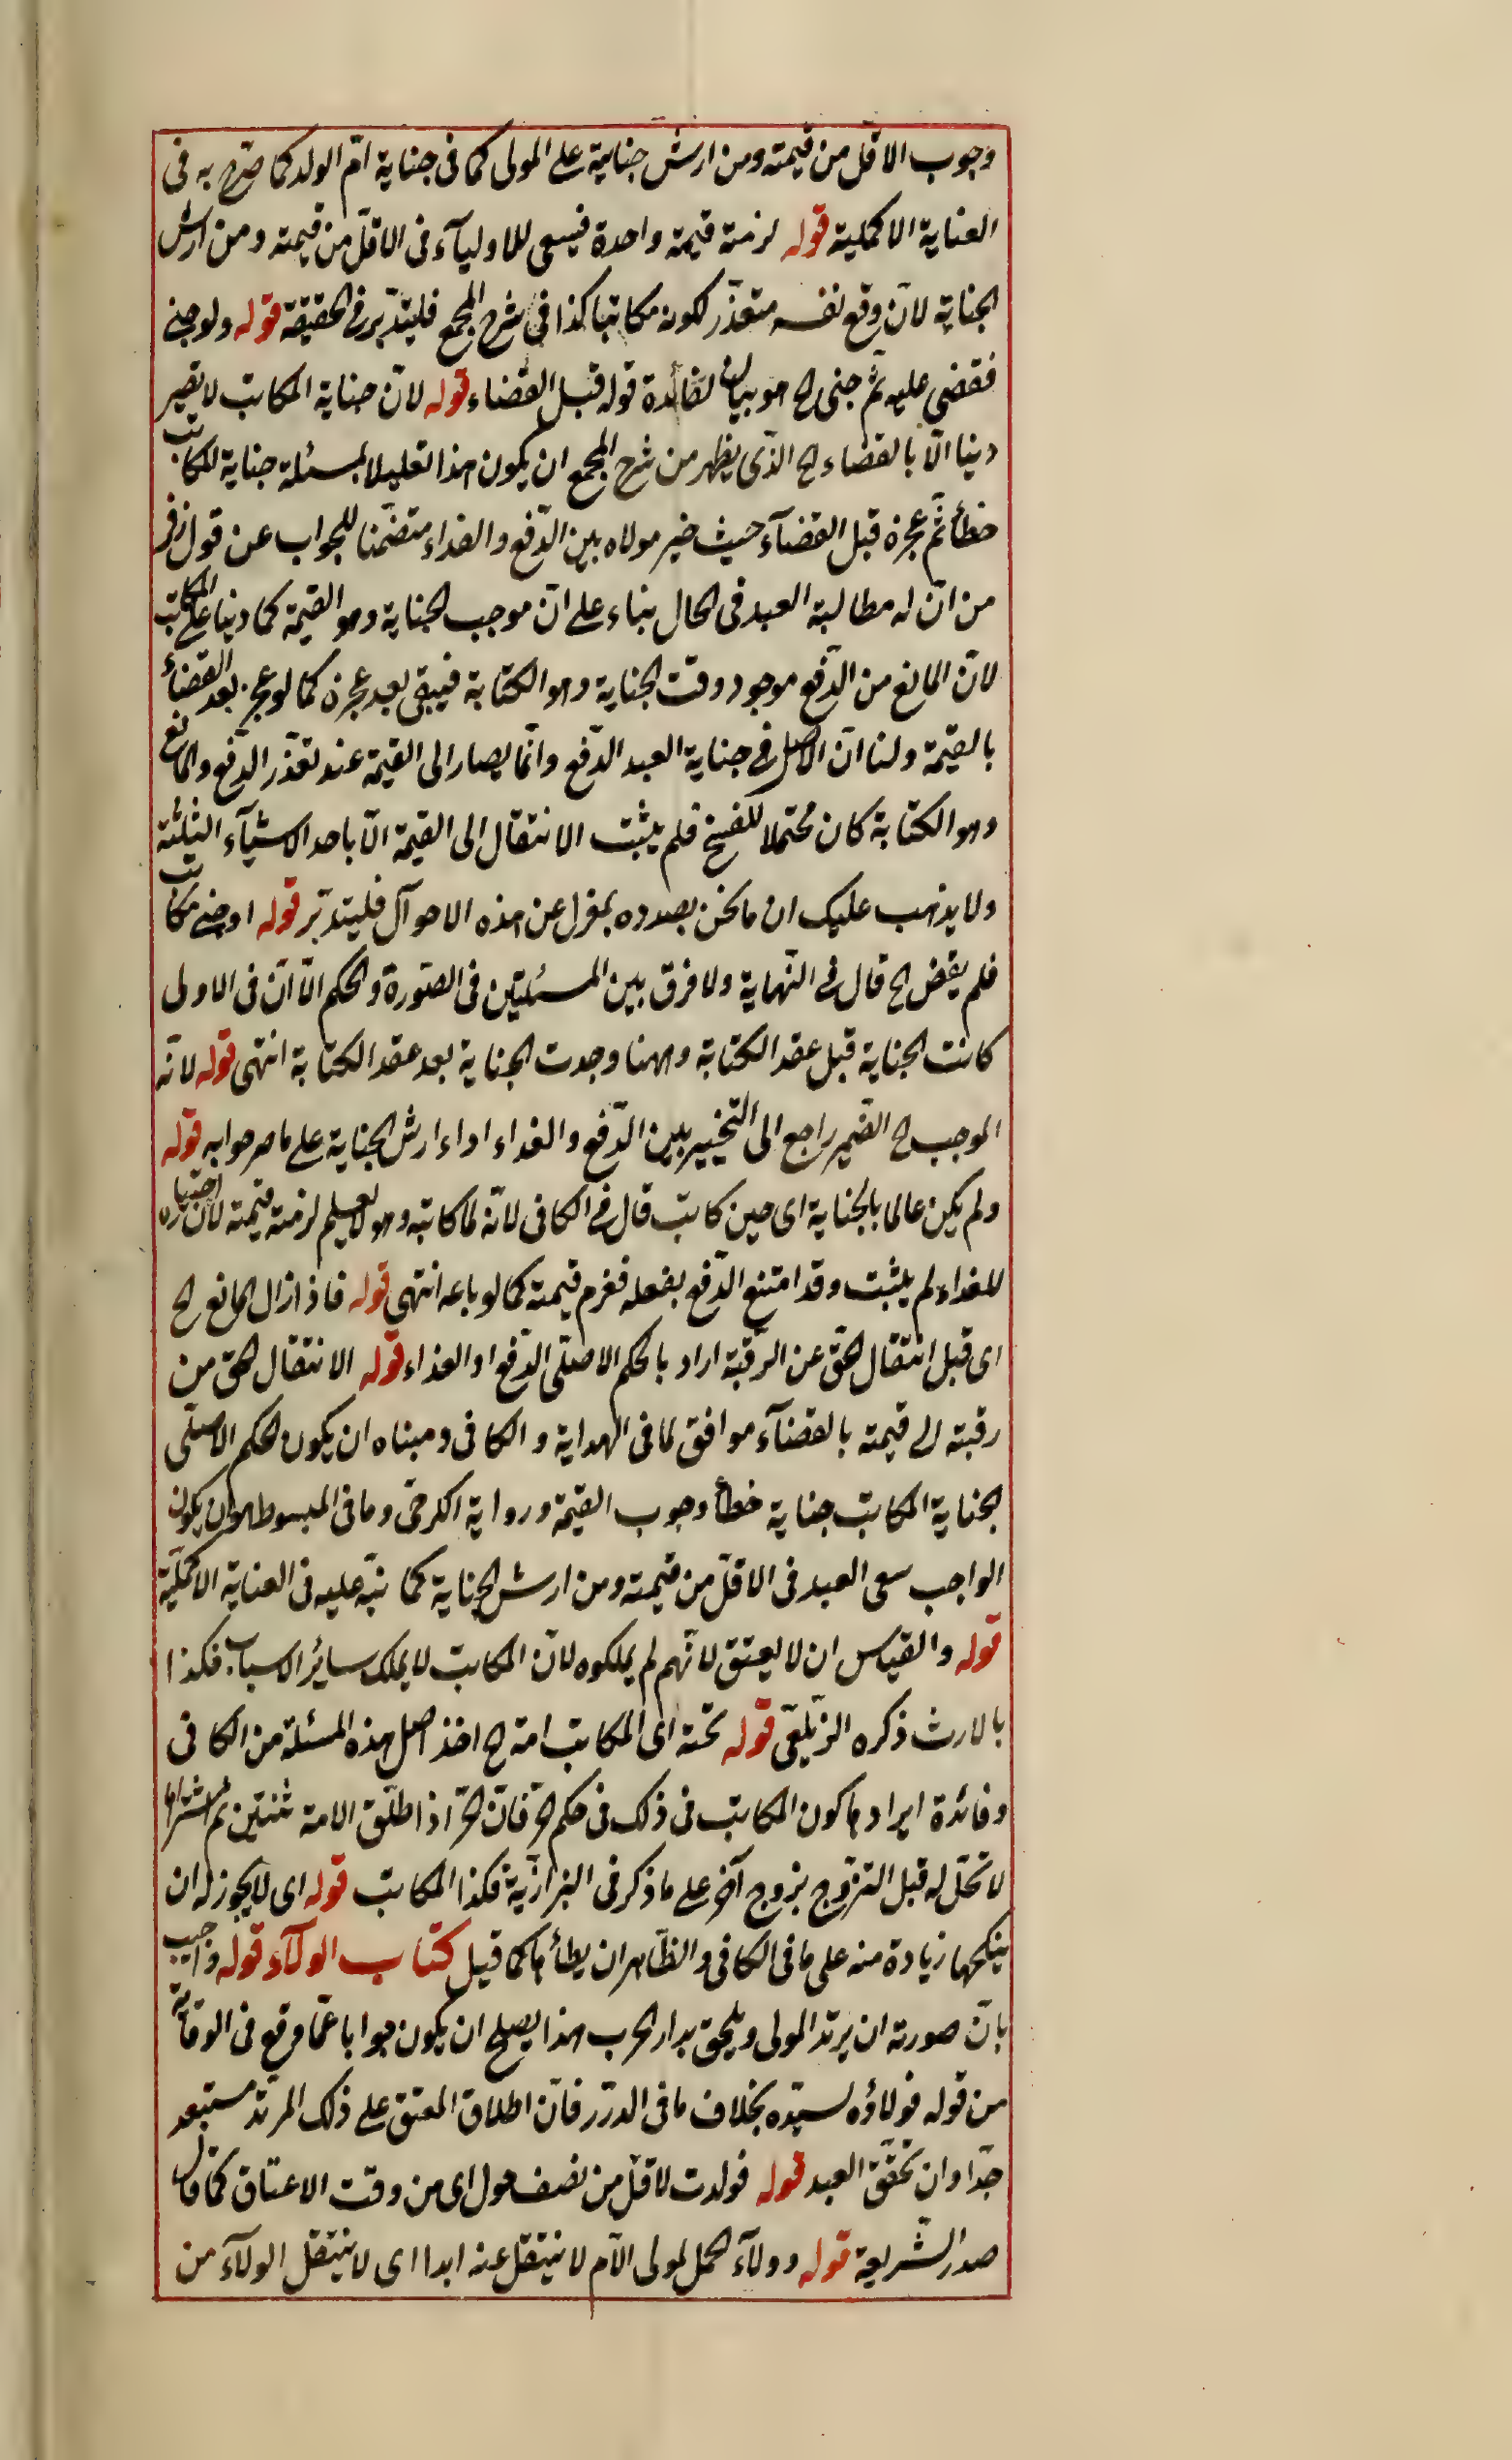 وجوب الاقل من قيمته ومن ارش جنايته على المولى كما فى جناية امّ الولد كما صرّح به فى
العناية الاكملية قوله لزمته قيمة واحدة فيسعى للاوليآء فى الاقلّ من قيمته ومن ارش
الجناية لانّ دفع نفسه متعذّر لكونه مكاتبا كذا فى شرح المجمع فليتدبّر فى الحقيقة قوله ولو جنى
فقضى عليه ثم جنى الخ هو بيان لفائدة قوله قبل القضاء قوله لانّ جناية المكاتب لا تصير
دينا الّا بالقضاء الخ الذى يظهر من شرح المجمع ان يكون هذا تعليلا لمسئلة جناية المكاتب
خطأ ثم عجزه قبل القضآء حيث خير مولاه بين الدّفع والفداء متضمّنا للجواب عن قول زفر
من انّ له مطالبة العبد فى الحال بناء على انّ موجب الجناية وهو القيمة كما دينا على المكاتب
لانّ المانع من الدّفع موجود وقت الجناية وهو الكتابة فيبقى بعد عجزه كما لو عجز بعد القضاء
بالقيمة ولنا انّ الاصل فى جناية العبد الدّفع وانّما يصار الى القيمة عند تعذّر الدّفع والمانع
وهو الكتابة كان محتملا للفسخ فلم يثبت الانتقال الى القيمة الّا باحد الاشيآء الثلثة
ولا يذهب عليك ان ما نحن بصدده بمعزل عن هذه الاحوآل فليتدبّر قوله او جنى مكاتب
فلم يقض الخ قال فى النّهاية ولا فرق بين المسئلتين فى الصّورة والحكم الّا انّ فى الاولى
كانت الجناية قبل عقد الكتابة وههنا وجدت الجناية بعد عقد الكتابة انتهى قوله لانّه
الموجب الخ الضّمير راجع الى التّخيير بين الدّفع والفداء اداء ارش الجناية على ما صرحوا به قوله
ولم يكن عالما بالجناية اى حين كاتب قال فى الكافى لانّه لما كاتبه وهو لا يعلم لزمته قيمته لانّ اختياره
للفداء لم يثبت وقد امتنع الدّفع بفعله فغرم قيمته كما لو باعه انتهى قوله فاذا زال المانع الخ
اى قبل انتقال الحقّ عن الرّقبة اراد بالحكم الاصلّى الدّفع او الفداء قوله الانتقال الحق من
رقبته الى قيمته بالقضآء موافق لما فى الهداية والكافى ومبناه ان يكون الحكم الاصلّى
لجناية المكاتب جناية خطأ وجوب القيمة ورواية الكرخى وما فى المبسوط هو ان يكون
الواجب سعى العبد فى الاقلّ من قيمته ومن ارش الجناية كما نبّه عليه فى العناية الاكمليّة
قوله والقياس ان لا يعتق لانّهم لم يملكوه لانّ المكاتب لا يملك بسائر الاسباب فكذا
بالارث ذكره الزّيلعّى قوله تحته اى المكاتب امة الخ اخذ اصل هذه المسئلة من الكافى
وفائدة ايرادها كون المكاتب فى ذلك فى حكم الحرّ فانّ الحرّ اذا طلّق الامة ثنتين ثم اشتراها
لا تحلّ له قبل التزوّج بزوج آخر على ما ذكر فى البزازيّة فكذا المكاتب قوله اى لا يجوز له ان
ينكحها زيادة منه على ما فى الكافى والظّاهر ان يطأها كما قيل كتاب الولآء قوله واجيب
بانّ صورته ان يرتدّ المولى ويلحق بدار الحرب هذا يصلح ان يكون جوابا عمّا وقع فى الوقاية
من قوله فولاؤه لسيّده بخلاف ما فى الدّرر فانّ اطلاق المعتق على ذلك المرتدّ مستبعد
جدّا وان تحقّق العبد قوله فولدت لاقلّ من نصف حول اى من وقت الاعتاق كما قال
صدر الشّريعة قوله وولآء الحمل لمولى الامّ لا ينتقل عنه ابدا اى لا ينتقل الولآء من